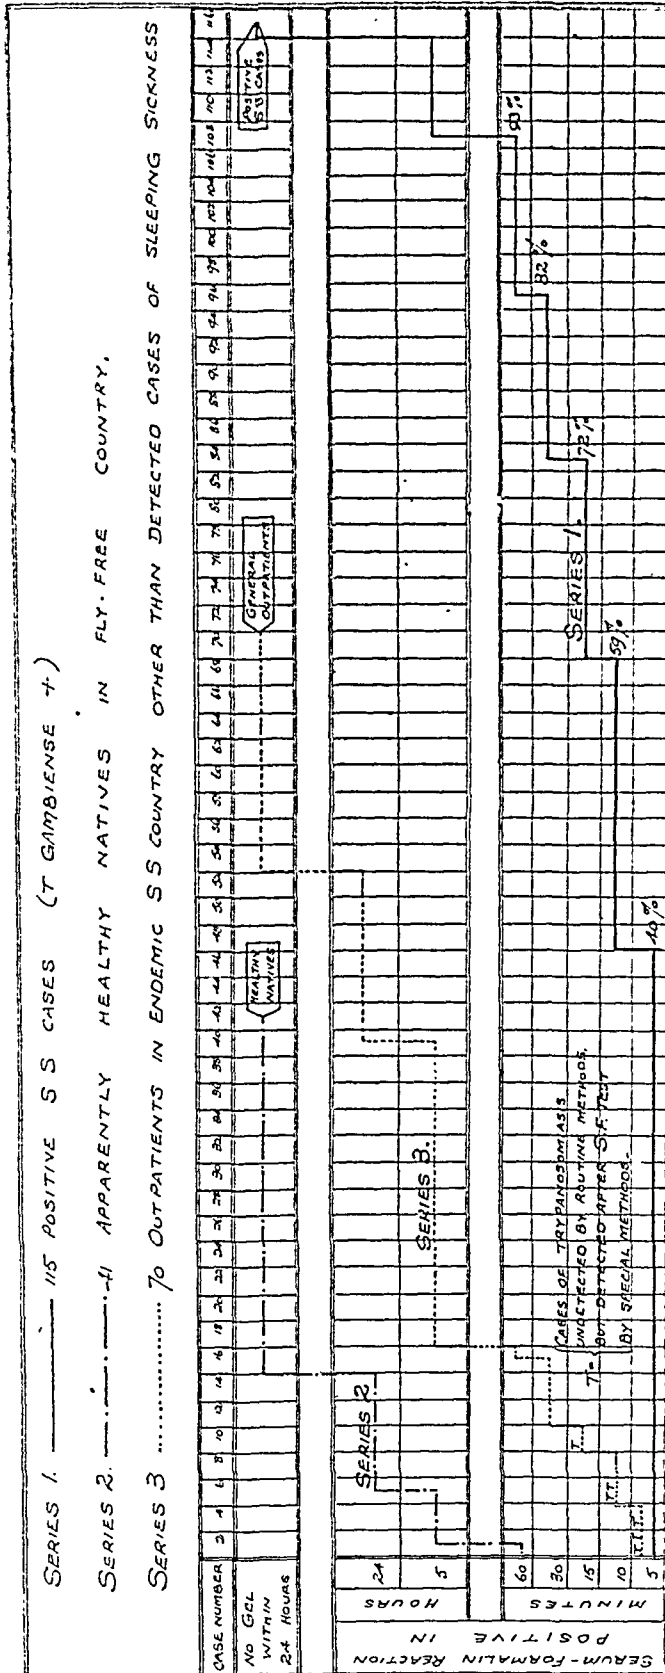 SERIES 1. 115 POSITIVE S S CASES (T GAMBIENSE +)
SERIES 2. 41 APPARENTLY HEALTHY NATIVES IN FLY-FREE COUNTRY.
SERIES 3 70 OUTPATIENTS IN ENDEMIC SS COUNTRY OTHER THAN DETECTED CASES OF SLEEPING SICKNESS
CASE NUMBER 2 4 6 8 10 12 14 16 18 20 22 24 26 28 30 32 34 36 38 40 42 44 46 48 50 52 54 56 58 60 62 64 66 68 70 72 74 76 78 80 82 84 86 88 90 92 94 96 98 100 102 104 106 108 110 112 114 116
NO GEL
WITHIN
24 HOURS
HEALTHY
NATIVES
GENERAL
OUTPATIENTS
POSITIVE
SS CASES
SERUM-FORMALIN REACTION
POSITIVE IN
HOURS
24
5
MINUTES
60
30
15
10
5
SERIES 2
SERIES 3.
SERIES 1.
T =
CASES OF TRYPANOSOMIASIS
UNDETECTED BY ROUTINE METHODS,
BUT DETECTED AFTER S.F. TEST
BY SPECIAL METHODS.
T
T.T.
T.T.T
40%
59%
72%
82%
93%